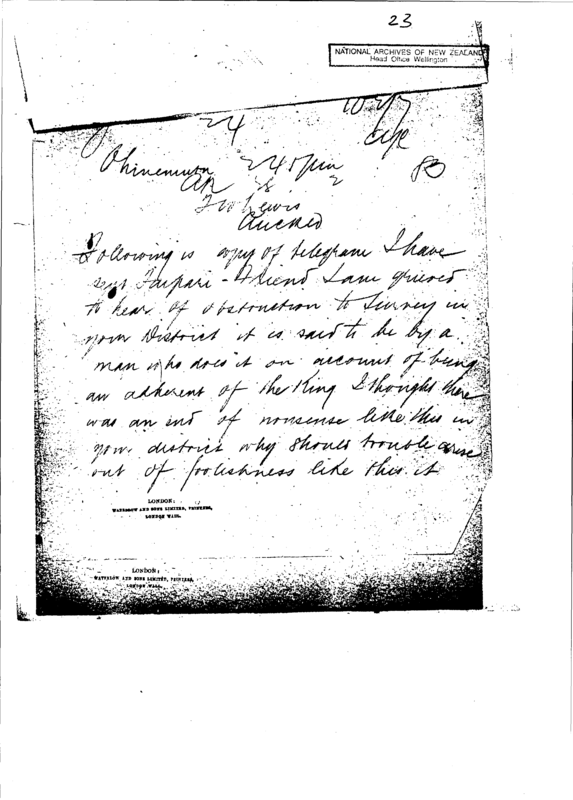 23
NATIONAL ARCHIVES OF NEW ZEALAND
Head Office Wellington
24
Ohinemuri 245 pm
Ap 18 2
83
Lewis
Auckld
Following is copy of telegram I have
sent Taipari - Friend I am grieved
to hear of obstruction to Survey in
your District it is said to be by a
man who does it on account of being
an adherent of the King I thought there
was an end of nonsense like this in
your district why should trouble arise
out of foolishness like this it
LONDON:
WATERLOW AND SONS LIMITED, PRINTERS,
LONDON WALL.
LONDON:
WATERLOW AND SONS LIMITED, PRINTERS,
LONDON WALL.